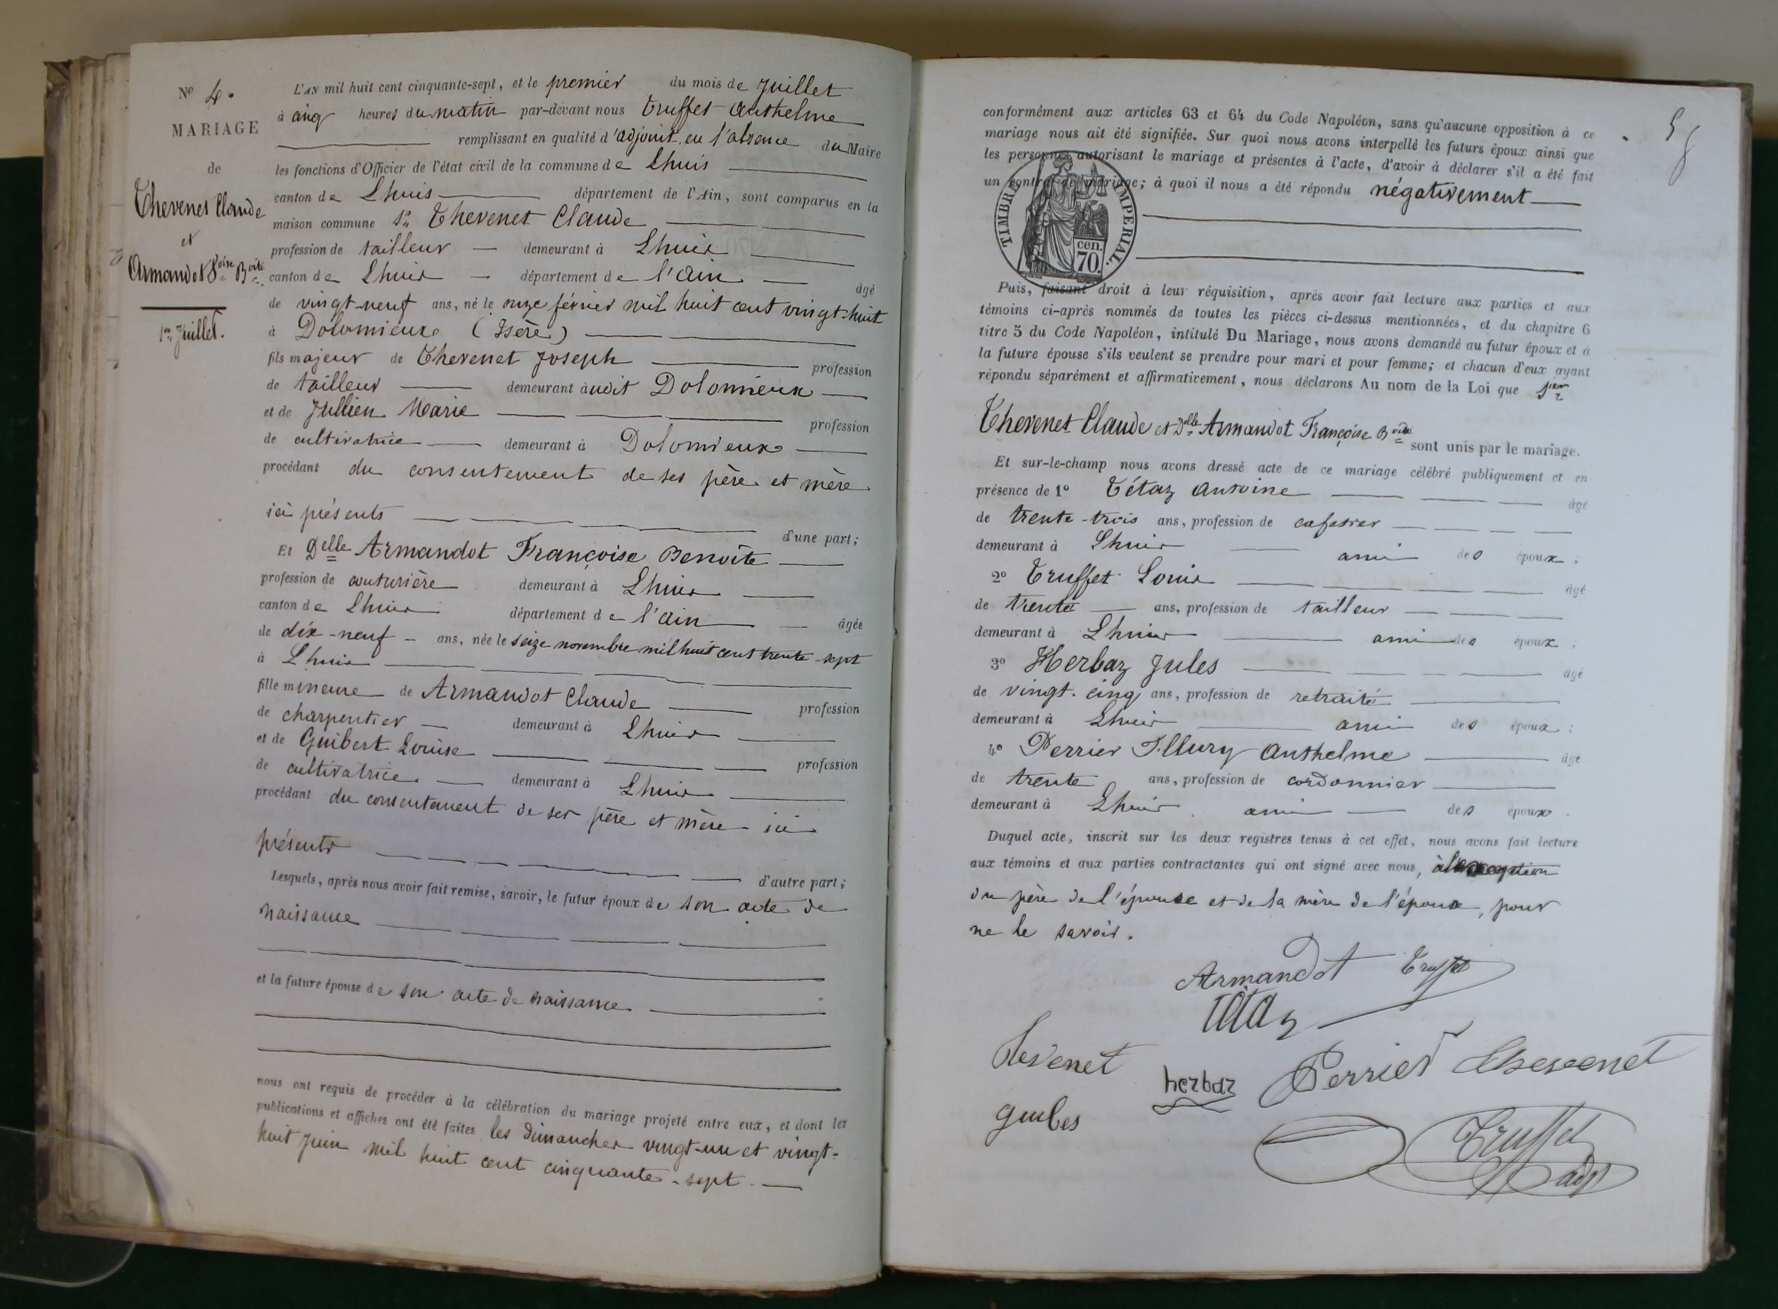 N° 4.
MARIAGE
de
Thevenet Claude
et
Armandot Foise Boite
1er Juillet.
L'AN mil huit cent cinquante-sept, et le premier du mois de Juillet
à cinq heures du matin par-devant nous Truffet Anthelme
remplissant en qualité d'adjoint en l'absence du Maire
les fonctions d'Officier de l'état civil de la commune de Lhuis
canton de Lhuis département de l'Ain, sont comparus en la
maison commune Sr Thevenet Claude
profession de tailleur demeurant à Lhuis
canton de Lhuis département de l'Ain âgé
de vingt-neuf ans, né le onze février mil huit cent vingt-huit
à Dolomieux (Isère)
fils majeur de Thevenet Joseph profession
de tailleur demeurant à udit Dolomieux
et de Jullien Marie profession
de cultivatrice demeurant à Dolomieux
procédant du consentement de ses père et mère
ici présents d'une part;
Et Delle Armandot Françoise Benoîte
profession de couturière demeurant à Lhuis
canton de Lhuis département de l'Ain âgée
de dix-neuf ans, née le seize novembre mil huit cent trente-sept
à Lhuis
fille mineure de Armandot Claude profession
de charpentier demeurant à Lhuis
et de Guibert Louise profession
de cultivatrice demeurant à Lhuis
procédant du consentement de ses père et mère ici
présents d'autre part;
Lesquels, après nous avoir fait remise, savoir, le futur époux de son acte de
naissance
et la future épouse de son acte de naissance
nous ont requis de procéder à la célébration du mariage projeté entre eux, et dont les
publications et affiches ont été faites les dimanches vingt-un et vingt-
huit juin mil huit cent cinquante-sept.
58
conformément aux articles 63 et 64 du Code Napoléon, sans qu'aucune opposition à ce
mariage nous ait été signifiée. Sur quoi nous avons interpellé les futurs époux ainsi que
les personnes autorisant le mariage et présentes à l'acte, d'avoir à déclarer s'il a été fait
un contrat de mariage; à quoi il nous a été répondu négativement
TIMBRE IMPERIAL.
70. cen.
Puis, faisant droit à leur réquisition, après avoir fait lecture aux parties et aux
témoins ci-après nommés de toutes les pièces ci-dessus mentionnées, et du chapitre 6
titre 5 du Code Napoléon, intitulé Du Mariage, nous avons demandé au futur époux et à
la future épouse s'ils veulent se prendre pour mari et pour femme; et chacun d'eux ayant
répondu séparément et affirmativement, nous déclarons Au nom de la Loi que Sieur
Thevenet Claude et Delle Armandot Françoise Boite sont unis par le mariage.
Et sur-le-champ nous avons dressé acte de ce mariage célébré publiquement et en
présence de 1° Tétaz Antoine âgé
de trente-trois ans, profession de cafetier
demeurant à Lhuis ami des époux;
2° Truffet Louis âgé
de trente ans, profession de tailleur
demeurant à Lhuis ami des époux;
3° Herbaz Jules âgé
de vingt-cinq ans, profession de retraité
demeurant à Lhuis ami des époux;
4° Perrier Fleury Anthelme âgé
de trente ans, profession de cordonnier
demeurant à Lhuis ami des époux.
Duquel acte, inscrit sur les deux registres tenus à cet effet, nous avons fait lecture
aux témoins et aux parties contractantes qui ont signé avec nous, à l'exception
du père de l'épouse et de la mère de l'époux, pour
ne le savoir.
Armandot Truffet
tétaz
Tevenet herbaz Perrier Thevenet
guibes
Truffet
adjt